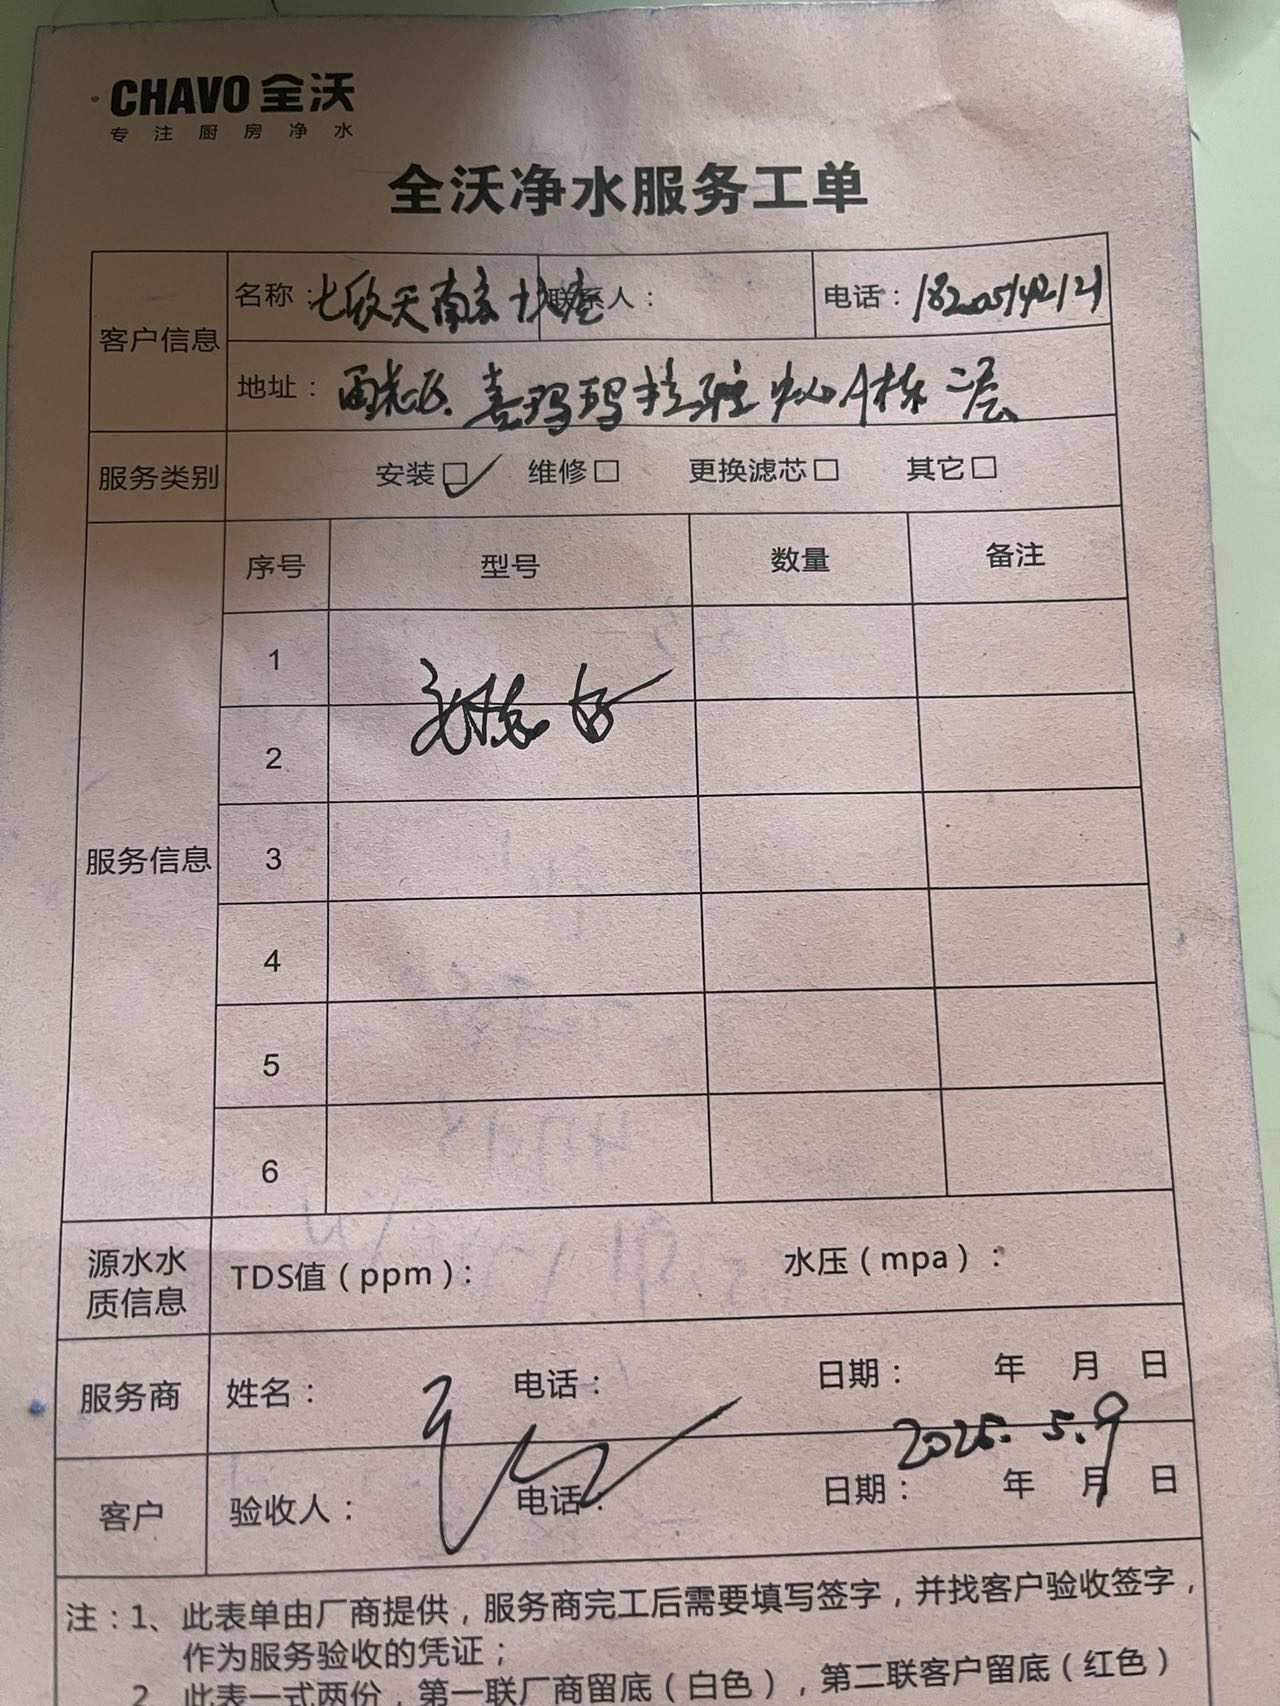 CHAVO 全沃
专注厨房净水
全沃净水服务工单
客户信息
名称：七欣天南京 联系人： 电话：18205142121
地址： 喜玛玛拉雅中心A栋二层
服务类别 安装□✓ 维修□ 更换滤芯□ 其它□
服务信息
序号 型号 数量 备注
1
2
3
4
5
6
源水水质信息 TDS值（ppm）： 水压（mpa）：
服务商 姓名： 电话： 日期： 年 月 日
2025.5.9
客户 验收人： 电话： 日期： 年 月 日
注：1、此表单由厂商提供，服务商完工后需要填写签字，并找客户验收签字，
作为服务验收的凭证；
2、此表一式两份，第一联厂商留底（白色），第二联客户留底（红色）